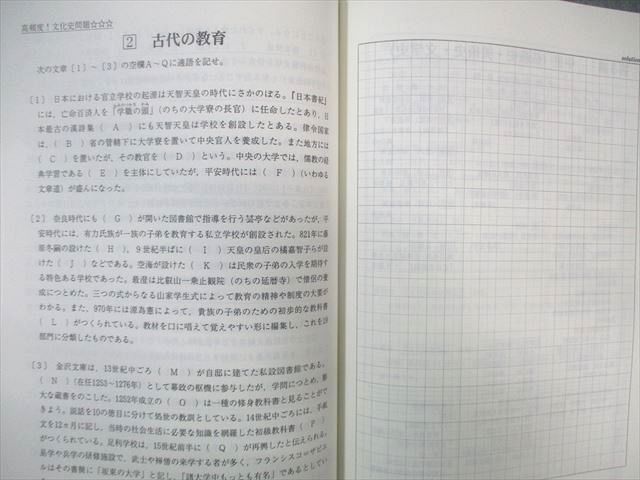 高頻度！文化史問題☆☆☆
2 古代の教育
次の文章〔1〕～〔3〕の空欄A～Qに適語を記せ。
〔1〕 日本における官立学校の起源は天智天皇の時代にさかのぼる。『日本書紀』
には、亡命百済人を「学職の頭」(のちの大学寮の長官)に任命したとあり、日
本最古の漢詩集（ A ）にも天智天皇は学校を創設したとある。律令国家
は、（ B ）省の管轄下に大学寮を置いて中央官人を養成した。また地方には
（ C ）を置いたが、その教官を（ D ）という。中央の大学では、儒教の経
典学習である（ E ）を主体にしていたが、平安時代には（ F ）(いわゆる
文章道）が盛んになった。
〔2〕 奈良時代にも（ G ）が開いた図書館で指導を行う芸亭などがあったが、平
安時代には、有力氏族が一族の子弟を教育する私立学校が創設された。821年に藤
原冬嗣の設けた（ H ）、9世紀半ばに（ I ）天皇の皇后の橘嘉智子らが設
けた（ J ）などである。空海が設けた（ K ）は民衆の子弟の入学を期待す
る特色ある学校であった。最澄は比叡山一乗止観院（のちの延暦寺）で僧侶の養
成につとめた。三つの式からなる山家学生式によって教育の精神や制度の大要が
わかる。また、970年には源為憲によって、貴族の子弟のための初歩的な教科書
（ L ）がつくられている。教材を口に唱えて覚えやすい形に編集し、これを19
部門に分類したものである。
〔3〕 金沢文庫は、13世紀中ごろ（ M ）が自邸に建てた私設図書館である。
（ N ）（在任1253～1276年）として幕政の枢機に参与したが、学問につとめ、膨
大な蔵書をのこした。1252年成立の（ O ）は一種の修身教科書と見ることがで
きよう。説話を10の徳目に分けて処世の教訓としている。14世紀中ごろには、手紙
文を12ヵ月に記し、当時の社会生活に必要な知識を網羅した初級教科書（ P ）
がつくられている。足利学校は、15世紀前半に（ Q ）が再興したと伝えられる。
易学や兵学の研修施設で、武士や禅僧の来学する者が多く、フランシスコ＝ザビエ
ルはその書簡に「坂東の大学」と記し、「諸大学中もっとも有名」であるとしてい